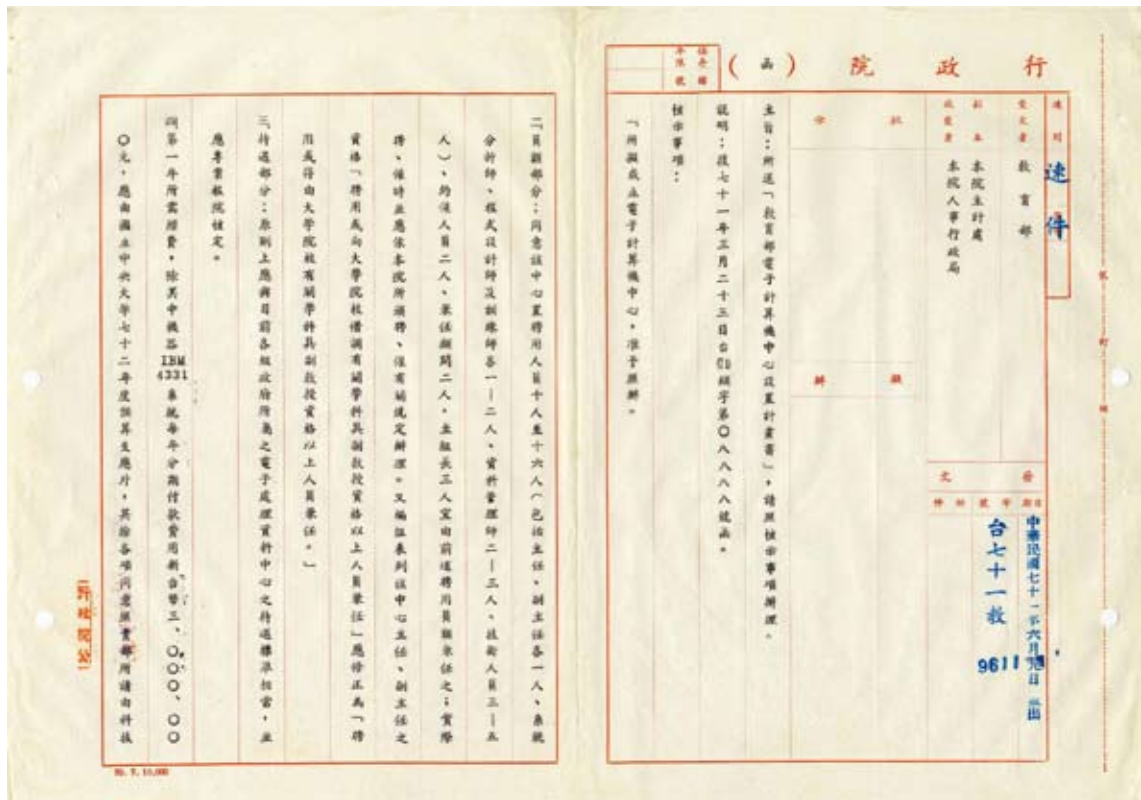 行政院（函）
保存年限
檔號
速別
速件
受文者
教育部
副本
收受者
本院主計處
本院人事行政局
批示
擬辦
發文
日期
字號
附件
中華民國七十一年六月 日 發出
台七十一教
9611
主旨：所送「教育部電子計算機中心設置計畫書」，請照核示事項辦理。
說明：復七十一年三月二十三日台 字第〇八八八八號函。
核示事項：
「所擬成立電子計算機中心，准予照辦。
二、員額部分：同意該中心置聘用人員十人至十六人（包括主任、副主任各一人、系統
分析師、程式設計師及訓練師各一－二人、資料管理師二－三人、技術人員三－五
人）、約僱人員二人、兼任顧問二人，並組長三人宜由前述聘用員額兼任之；實際
聘、僱時並應依本院所頒聘、僱有關規定辦理。又編組表列該中心主任、副主任之
資格「聘用或向大學院校借調有關學科具副教授資格以上人員兼任」應修正為「聘
用或得由大學院校有關學科具副教授資格以上人員兼任。」
三、待遇部分：原則上應與目前各級政府所屬之電子處理資料中心之待遇標準相當，並
應專案報院核定。
四、第一年所需經費，除其中機器IBM 4331系統每年分期付款費用新台幣三、〇〇〇、〇〇
〇元，應由國立中央大學七十二年度預算支應外，其餘各項同意照貴部所請由科技